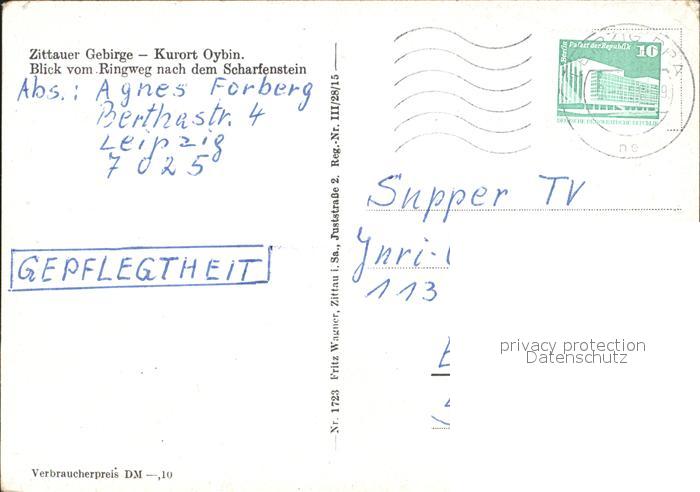 Zittauer Gebirge – Kurort Oybin.
Blick vom Ringweg nach dem Scharfenstein
Abs.: Agnes Forberg
Berthastr. 4
Leipzig
7025
GEPFLEGTHEIT
Verbraucherpreis DM —,10
Nr. 1723 Fritz Wagner, Zittau i. Sa., Juststraße 2. Reg.-Nr. III/28/15
Berlin Palast der Republik 10
DEUTSCHE DEMOKRATISCHE REPUBLIK
Supper TV
Ynri-
113
privacy protection
Datenschutz